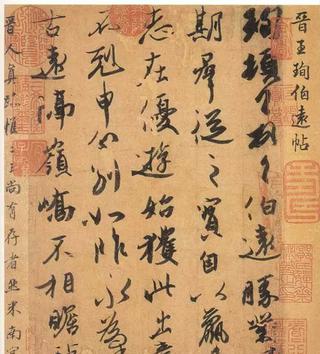 晉王珣伯遠帖
珣頓首頓首伯遠勝業
期羣從之寶自以羸
志在優遊始獲此出
不剋申分別如昨永為
古遠隔嶺嶠不相瞻
晉人真跡惟二王尚有存者然米南宮